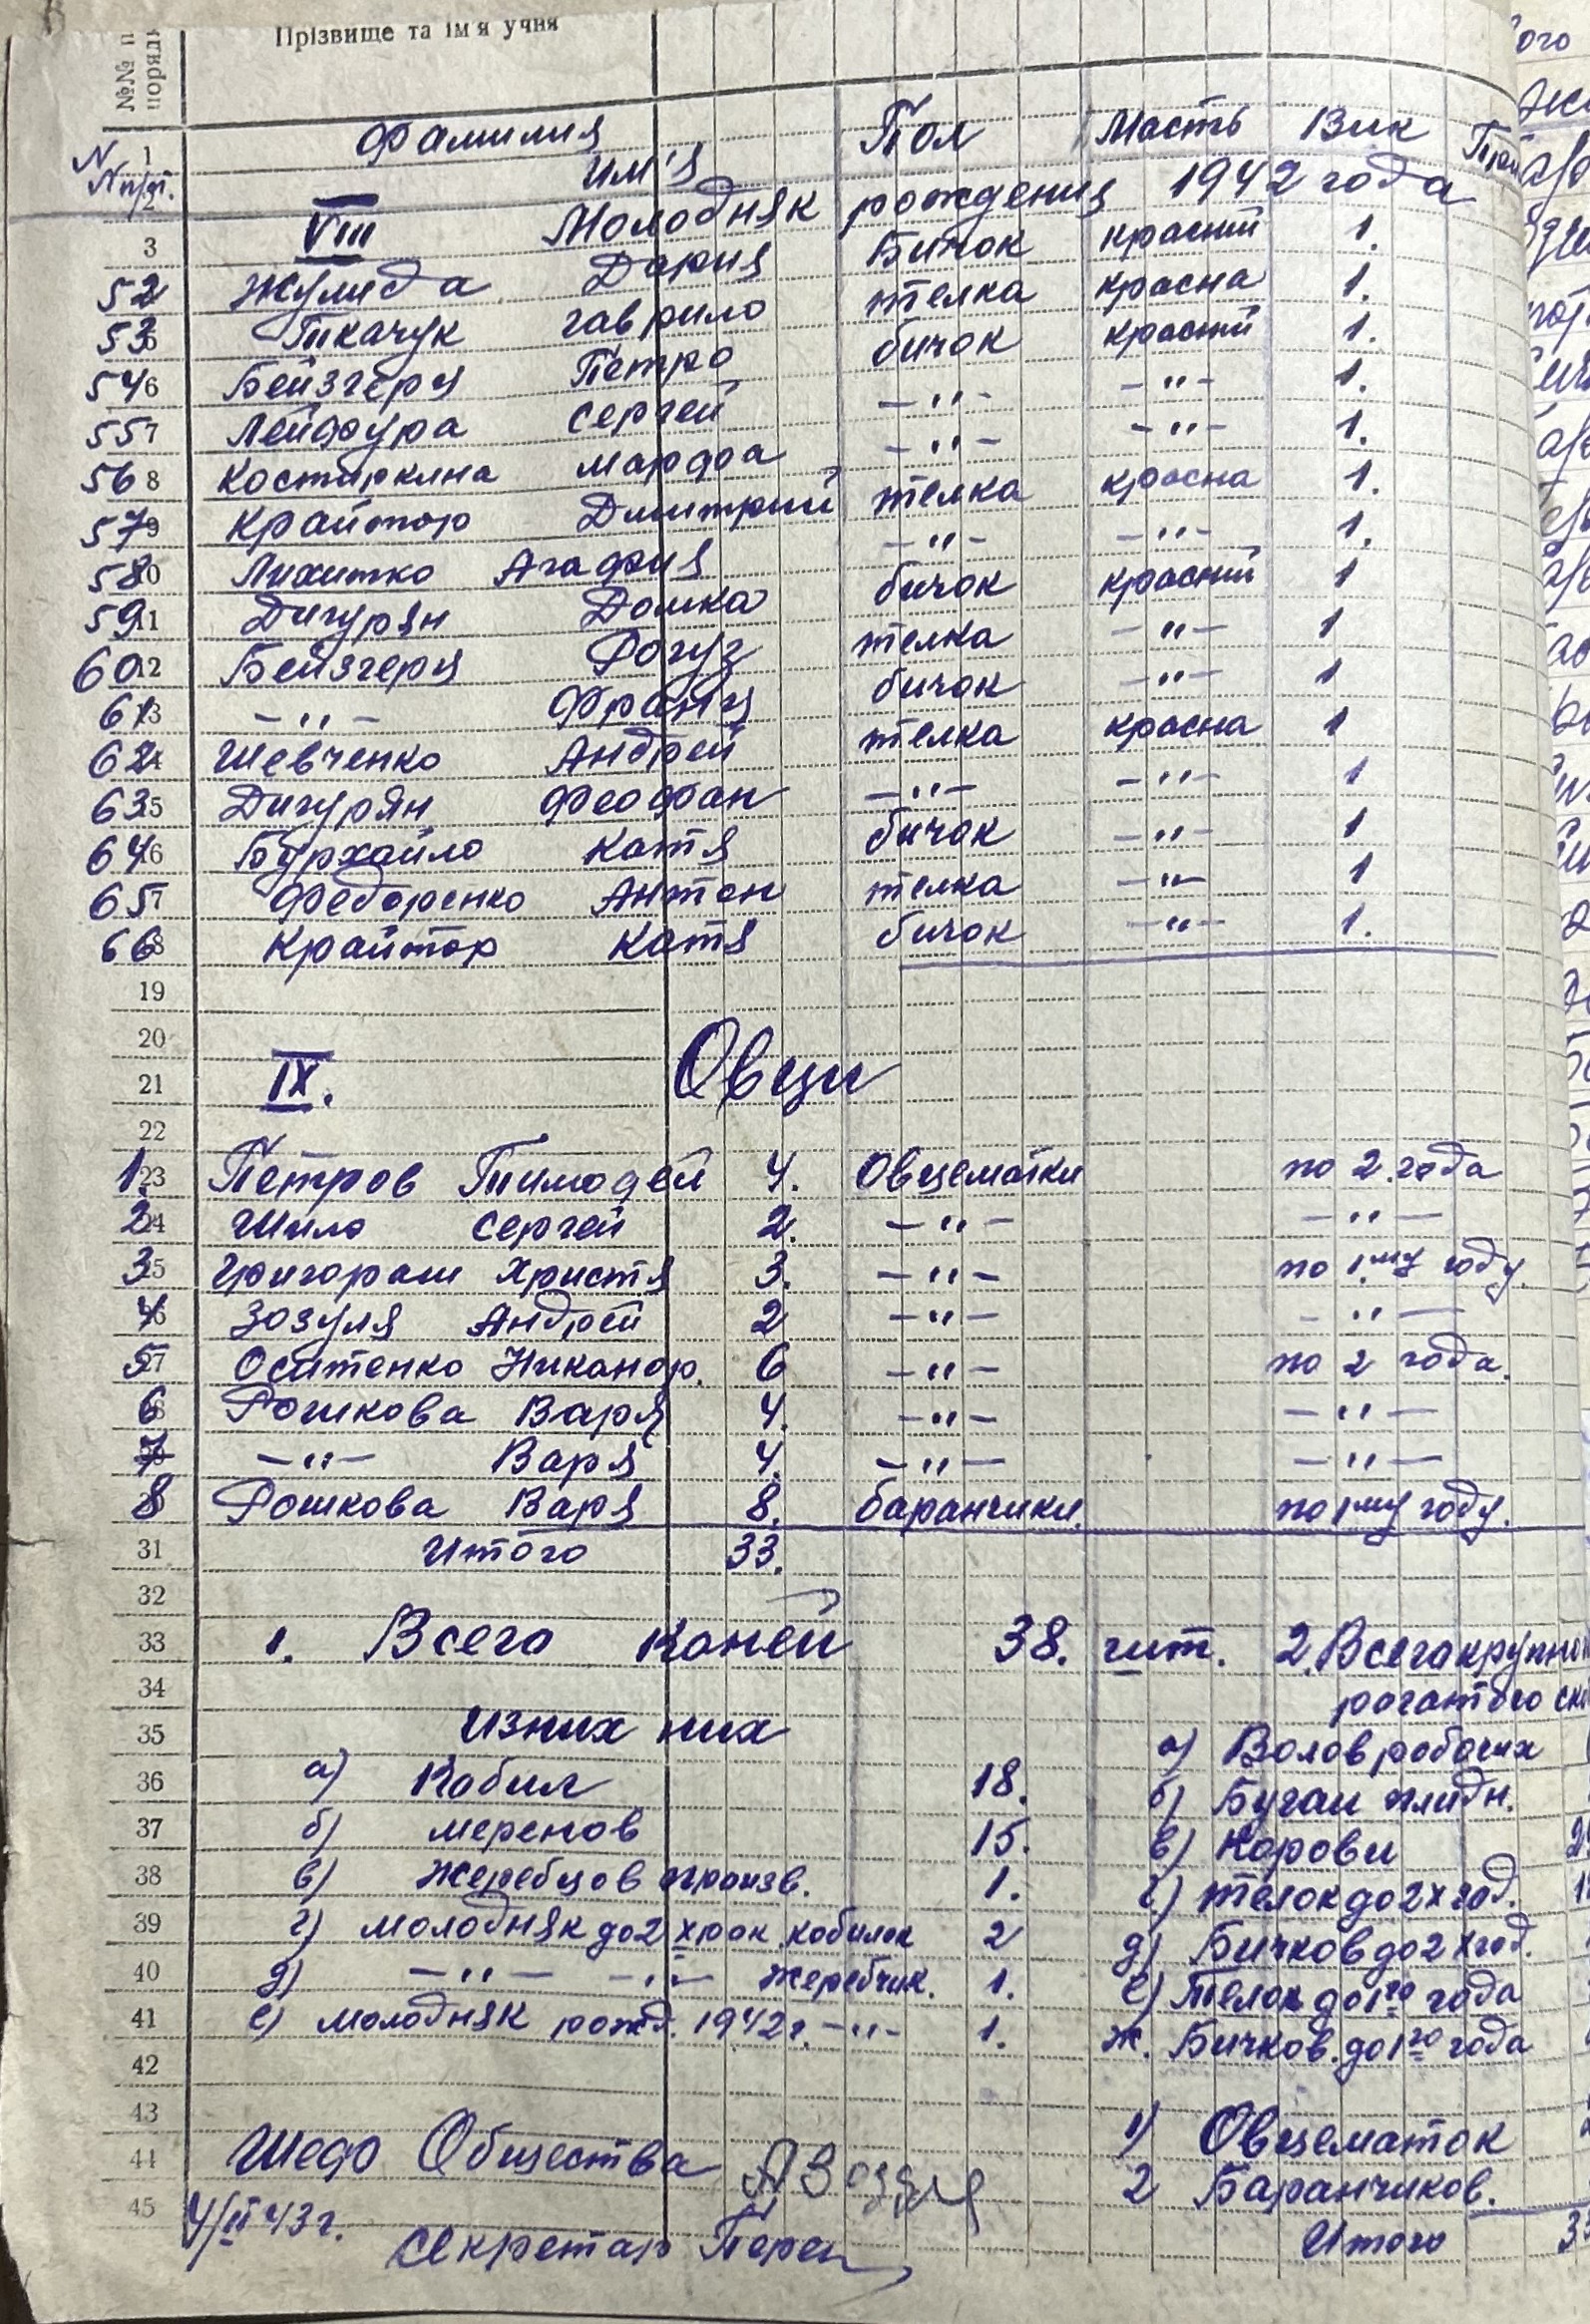 №№ п
порядк
Прізвище та ім'я учня
N Nп/п. Фамилия Им'я Пол Масть Вик
VIII Молодняк рождения 1942 года
52 Жулида Дария Бичок красний 1.
53 Ткачук Гаврило телка красна 1.
54 Бейзгеря Петро бичок красний 1.
55 Лейфура Сергей -"- -"- 1.
56 Костиркина Марфа -"- -"- 1.
57 Крайтор Дмитрий телка красна 1.
58 Лихитко Агафия -"- -"- 1.
59 Дигурян Домка бичок красний 1
60 Бейзгеря Рогуз телка -"- 1
61 -"- Франц бичок -"- 1
62 Шевченко Андрей телка красна 1
63 Дигурян Феофан -"- -"- 1
64 Бурхайло Катя бичок -"- 1
65 Федоренко Антон телка -"- 1
66 Крайтор Катя бичок -"- 1.
19
20
IX. Овци
21
22
1. Петров Тимофей 4. Овцематки по 2 года
2 Шило Сергей 2. -"- -"-
3 Григораш Христя 3. -"- по 1му году.
4 Зозуля Андрей 2 -"- -"-
5 Оситенко Никанор. 6 -"- по 2 года.
6 Рошкова Варя 4. -"- -"-
7 -"- Варя 4. -"- -"-
8 Рошкова Варя 8. баранчики. по 1му году.
31 Итого 33.
32
33 1. Всего коней 38. шт. 2. Всего крупно
34 рогатого ск
35 Из них них а) Волов рабочих
36 а) Кобил 18. б) Бугаи плидн.
37 б) меренов 15. в) Корови
38 в) Жеребцов произв. 1. г) телок до 2х год.
39 г) молодняк до 2х рок кобилок 2 д) Бичков до 2х год.
40 д) -"- -"- жеребчик. 1. е) Телок до 1го года
41 е) молодняк рожд. 1942 г. -"- 1. ж. Бичков. до 1го года
42
43 1) Овцематок
44 Шеф Общества АЗозуля 2 Баранчиков.
45 4/II 43 г. Секретар Итого 33